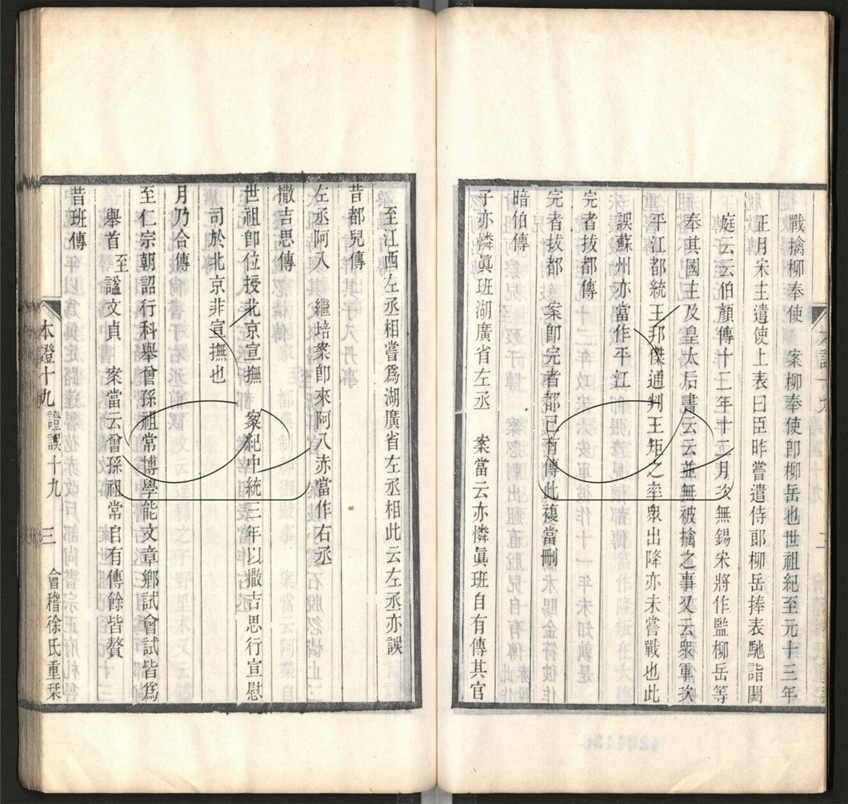 戰擒柳奉使　案柳奉使卽柳岳也世祖紀至元十三年
正月宋主遣使上表曰臣昨嘗遣侍郞柳岳捧表馳詣闕
庭云云伯顏傳十二年十二月次無錫宋將作監柳岳等
奉其國主及皇太后書云云並無被擒之事又云衆軍次
平江都統王邦傑通判王矩之率衆出降亦未嘗戰也此
誤蘇州亦當作平江
完者拔都傳
完者拔都　案卽完者都已有傳此複當刪
暗伯傳
子亦憐眞班湖廣省左丞　案當云亦憐眞班自有傳其官
至江西左丞相嘗爲湖廣省左丞相此云左丞亦誤
昔都兒傳
左丞阿八　繼培案卽來阿八赤當作右丞
撒吉思傳
世祖卽位授北京宣撫　案紀中統三年以撒吉思行宣慰
司於北京非宣撫也
月乃合傳
至仁宗朝詔行科舉曾孫祖常博學能文章鄉試會試皆爲
舉首　至　諡文貞　案當云曾孫祖常自有傳餘皆贅
昔班傳
本證十九　證誤十九　三　會稽徐氏重栞